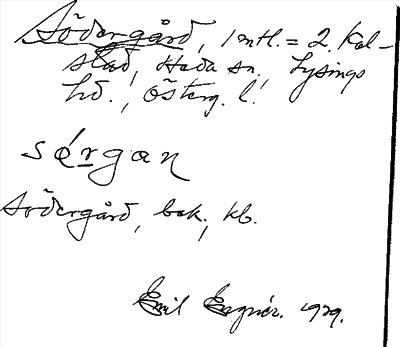 Södergård, 1 mtl. = 2. Kal-
stad, Heda sn., Lysings
hd., Österg. l.
sérgan
Södergård, bok., kb.
Emil 1929.